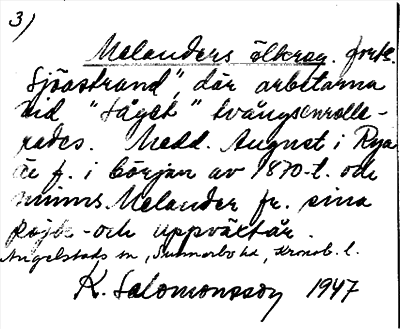 3)
Melanders ölkrog. forts.
Sjöastrand", där arbetarna
vid "Såget" tvångsenrolle-
rades. Medd. August i Rya
är f. i början av 1870-t. och
minns Melander fr. sina
pojk- och uppväxtår.
Angelstads sn, Sunnerbo hd, Kronob. l.
K. Salomonsson 1947